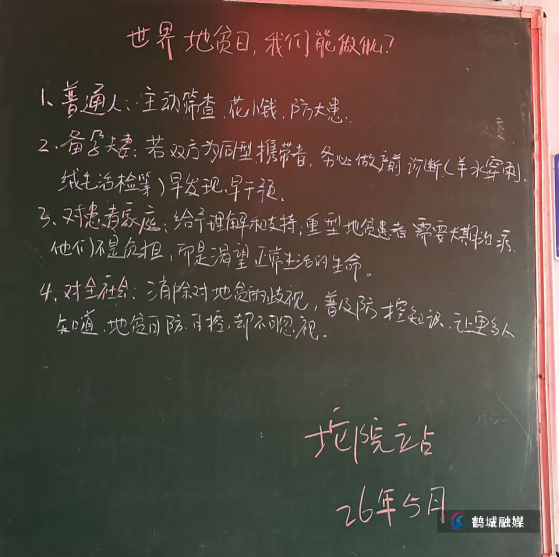 世界地贫日,我们能做什么?
1、普通人:主动筛查,花小钱,防大患.
2、备孕夫妻:若双方为同型携带者,务必做产前诊断(羊水穿刺,
绒毛活检等)早发现,早干预。
3、对患者家庭:给予理解和支持,重型地贫患者需要长期治疗,
他们不是负担,而是渴望正常生活的生命。
4、对全社会:消除对地贫的歧视,普及防控知识,让更多人
知道,地贫可防、可控,却不可忽视。
院立占
26年5月
鹤城融媒